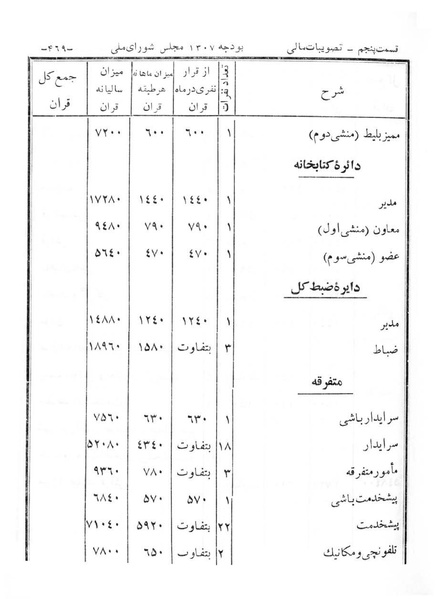 قسمت پنجم - تصویبات مالی بودجه ۱۳۰۷ مجلس شورای ملی -۴۶۹-
شرح تعداد نفرات از قرار نفری در ماه قران میزان ماهانه هر طبقه قران میزان سالیانه قران جمع کل قران
ممیز بلیط (منشی دوم) ۱ ۶۰۰ ۶۰۰ ۷۲۰۰
دائرهٔ کتابخانه
مدیر ۱ ۱٤٤۰ ۱٤٤۰ ۱۷۲۸۰
معاون (منشی اول) ۱ ۷۹۰ ۷۹۰ ۹٤۸۰
عضو (منشی سوم) ۱ ٤۷۰ ٤۷۰ ۵٦٤۰
دایرهٔ ضبط کل
مدیر ۱ ۱۲٤۰ ۱۲٤۰ ۱٤۸۸۰
ضباط ۳ بتفاوت ۱۵۸۰ ۱۸۹٦۰
متفرقه
سرایدار باشی ۱ ٦۳۰ ٦۳۰ ۷۵٦۰
سرایدار ۱۸ بتفاوت ٤۳٤۰ ۵۲۰۸۰
مأمور متفرقه ۳ بتفاوت ۷۸۰ ۹۳٦۰
پیشخدمت باشی ۱ ۵۷۰ ۵۷۰ ٦۸٤۰
پیشخدمت ۲۲ بتفاوت ۵۹۲۰ ۷۱۰٤۰
تلفونچی و مکانیك ۲ بتفاوت ٦۵۰ ۷۸۰۰